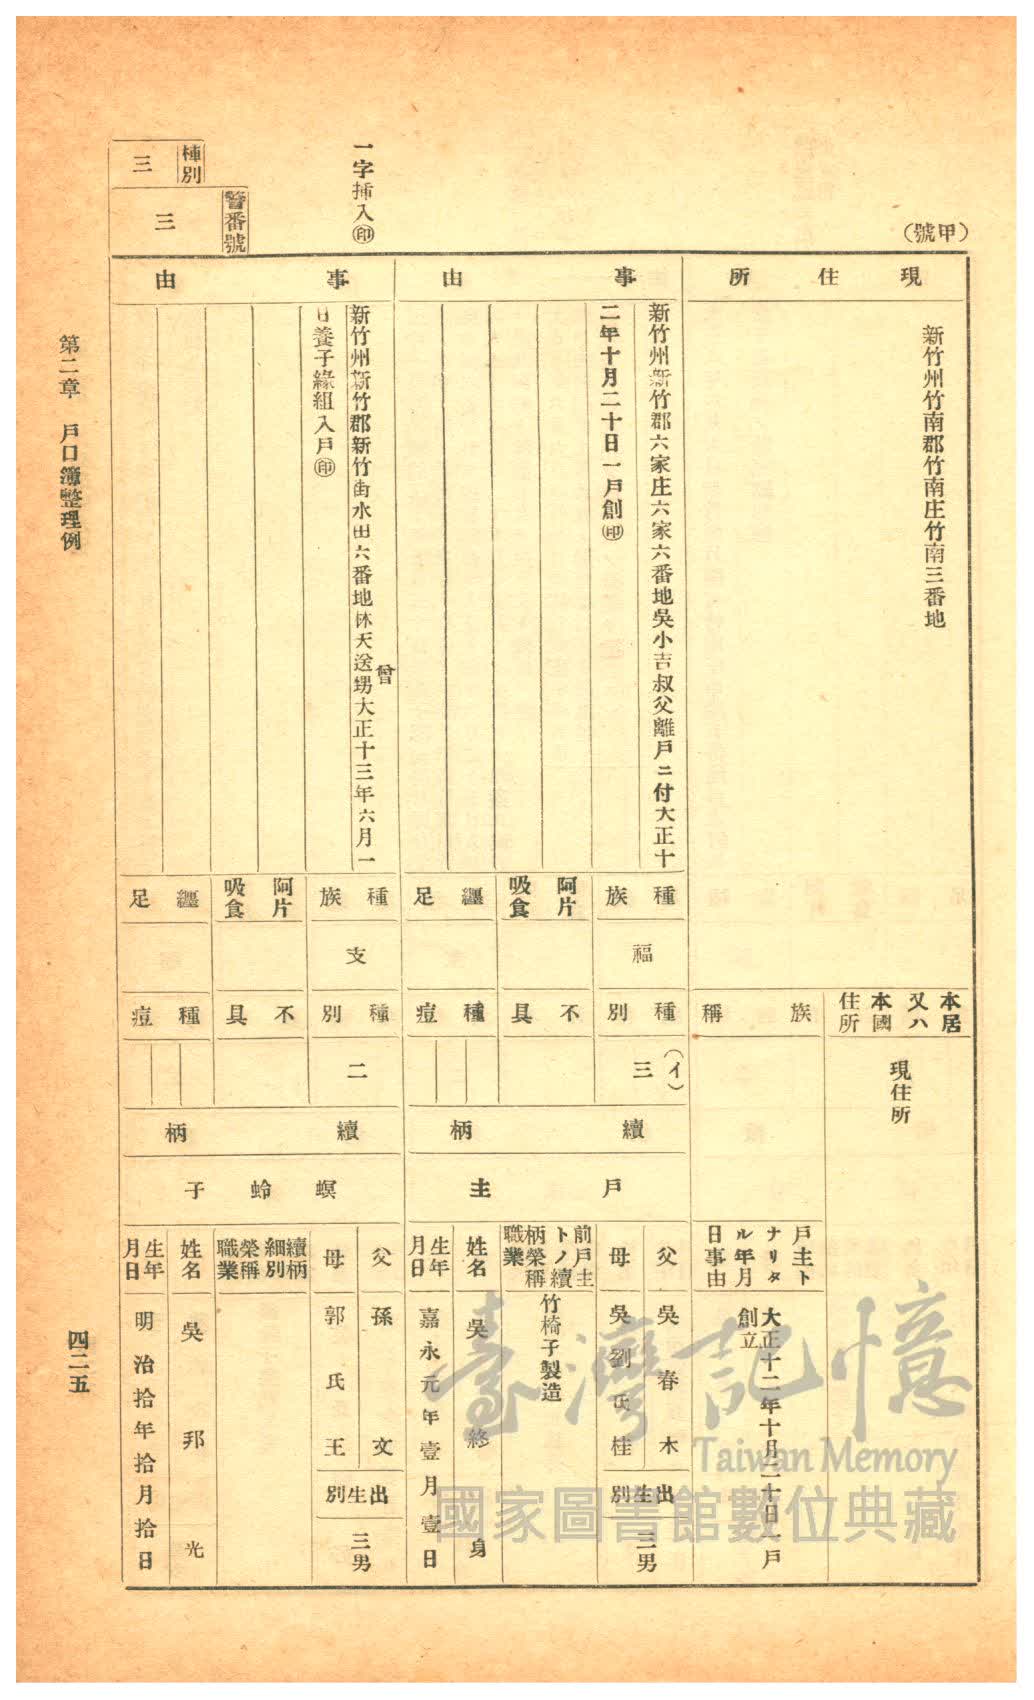 (甲號)
一字挿入㊞
種別
三
警番號
三
現住所
新竹州竹南郡竹南庄竹南三番地
本居又ハ本國住所
現住所
族稱
戶主トナリタル年月日事由
大正十二年十月二十日一戶
創立
事由
新竹州新竹郡六家庄六家六番地吳小吉叔父離戶ニ付大正十
二年十月二十日一戶創㊞
種族
福
阿片吸食
纏足
種別
(イ)
三
不具
種痘
續柄
戶主
父
吳春木
母
吳劉氏桂
出生別
三男
前戶主トノ續柄榮稱職業
竹椅子製造
姓名
吳終身
生年月日
嘉永元年壹月壹日
事由
曾
新竹州新竹郡新竹街水田六番地林天送甥大正十三年六月一
日養子緣組入戶㊞
種族
支
阿片吸食
纏足
種別
二
不具
種痘
續柄
螟蛉子
父
孫文
母
郭氏王
出生別
三男
續柄細別榮稱職業
姓名
吳邦光
生年月日
明治拾年拾月拾日
第二章 戶口簿整理例
四二五
臺灣記憶
Taiwan Memory
國家圖書館數位典藏